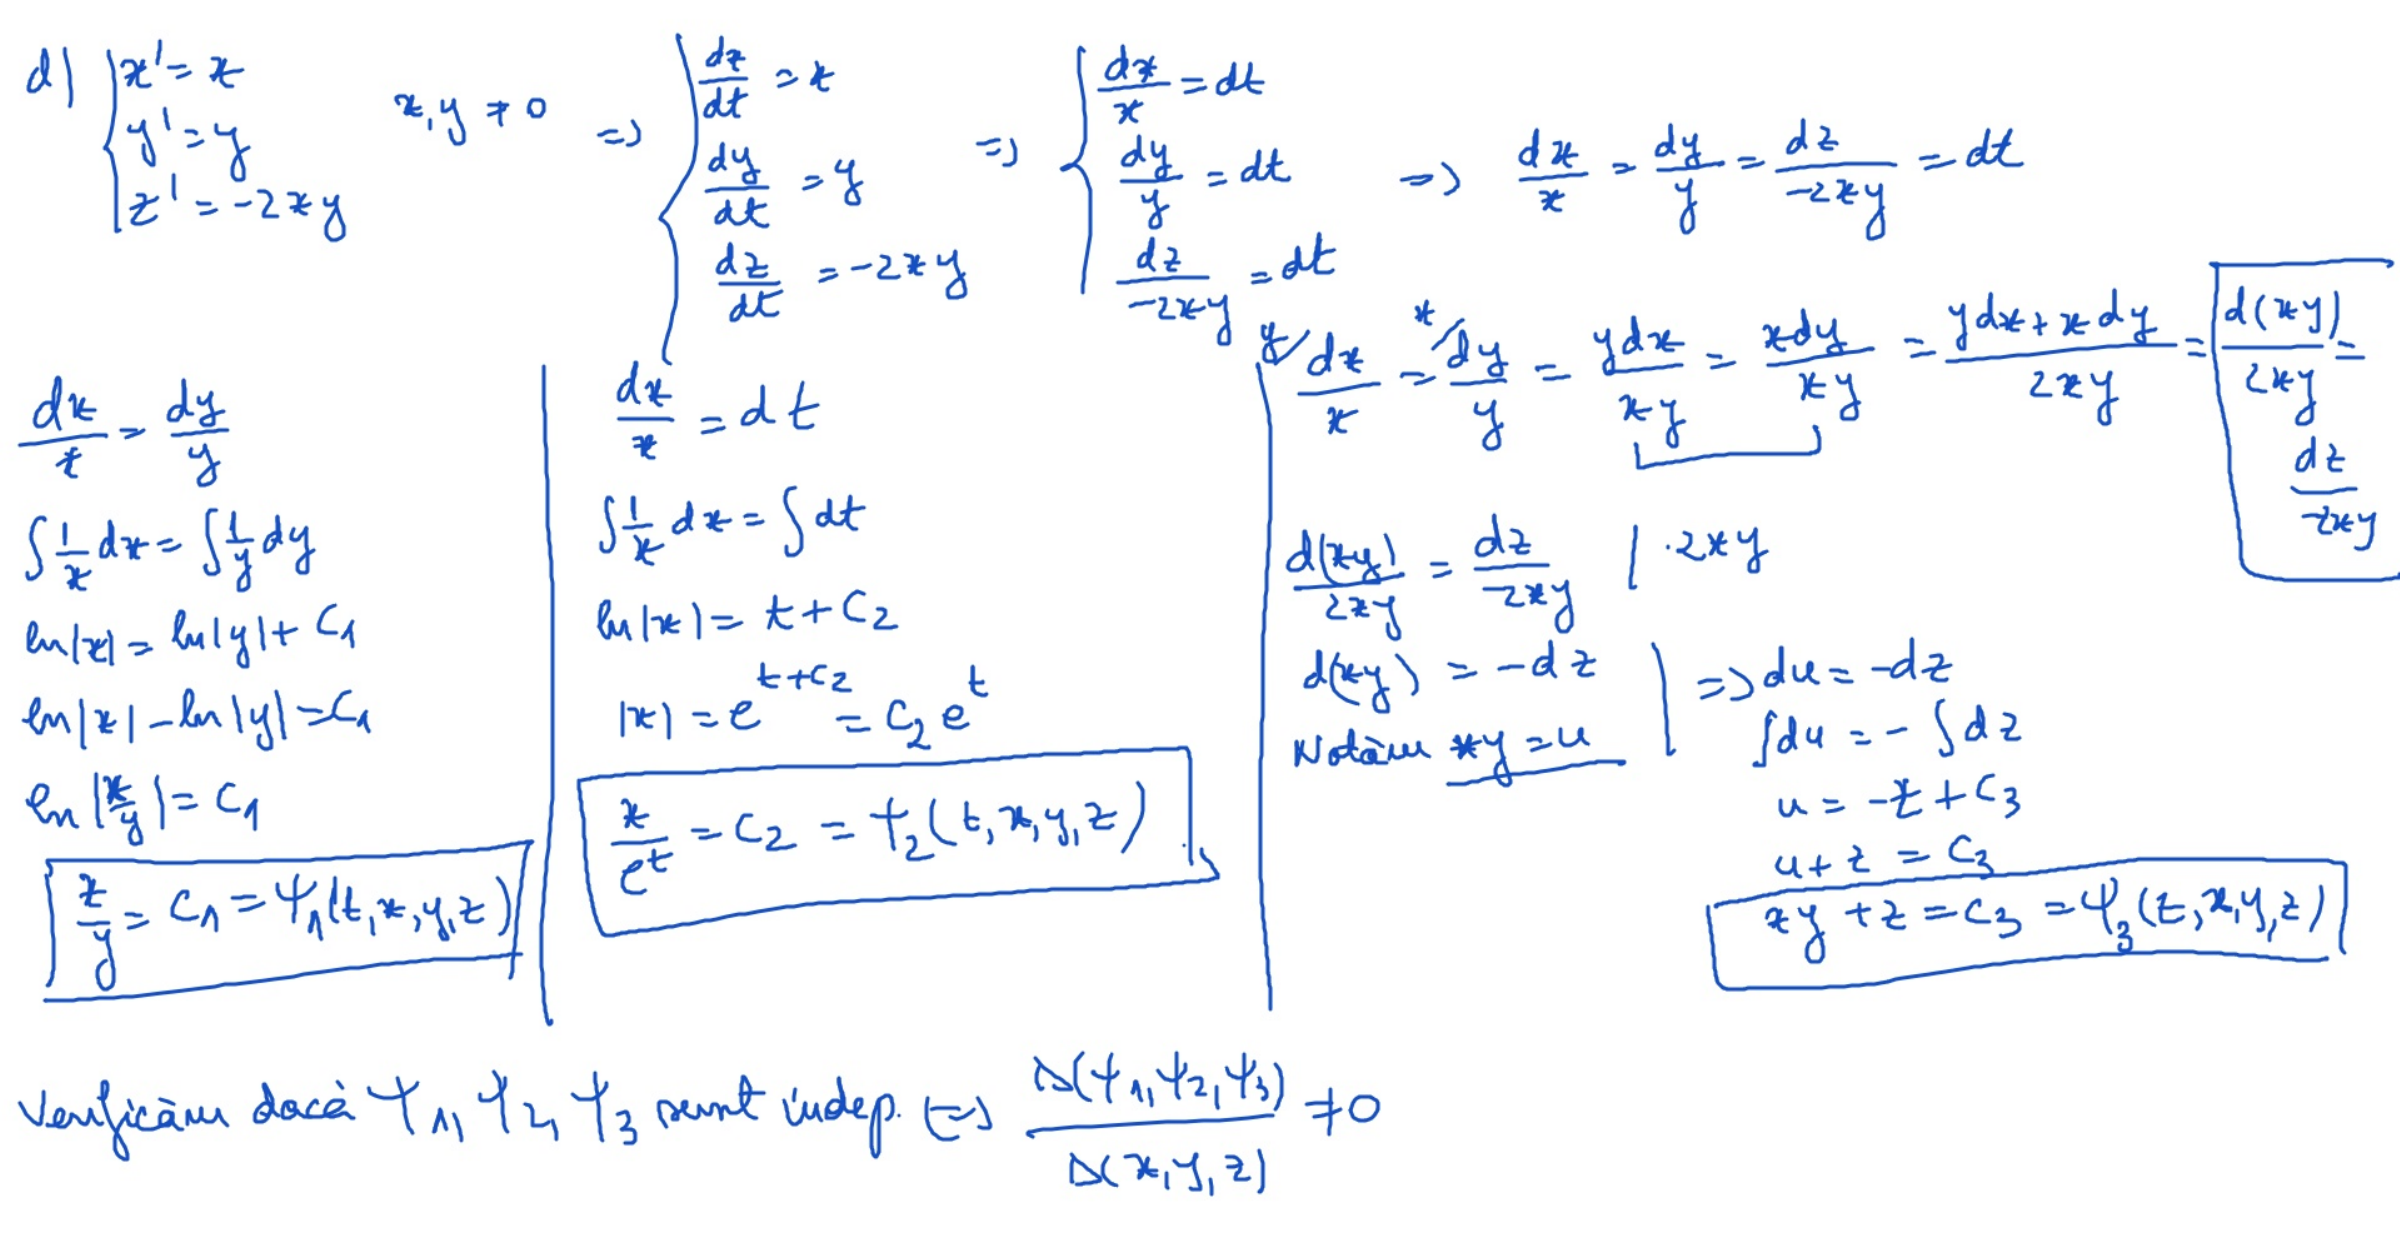 d) { x' = x
y' = y
z' = -2xy
x, y ≠ 0
=> { dx/dt = x
dy/dt = y
dz/dt = -2xy
=> { dx/x = dt
dy/y = dt
dz/-2xy = dt
=> dx/x = dy/y = dz/-2xy = dt
dx/x = dy/y
∫ 1/x dx = ∫ 1/y dy
ln|x| = ln|y| + C1
ln|x| - ln|y| = C1
ln|x/y| = C1
x/y = C1 = Ψ1(t, x, y, z)
dx/x = dt
∫ 1/x dx = ∫ dt
ln|x| = t + C2
|x| = e^(t+C2) = C2 e^t
x/e^t = C2 = Ψ2(t, x, y, z)
y/ dx/x = x/ dy/y = ydx/xy = xdy/xy = ydx + xdy/2xy = d(xy)/2xy =
dz/-2xy
d(xy)/2xy = dz/-2xy | ·2xy
d(xy) = -dz
Notăm xy = u
=> du = -dz
∫du = -∫dz
u = -z + C3
u + z = C3
xy + z = C3 = Ψ3(t, x, y, z)
Verificăm dacă Ψ1, Ψ2, Ψ3 sunt indep. (=) D(Ψ1, Ψ2, Ψ3)/D(x, y, z) ≠ 0